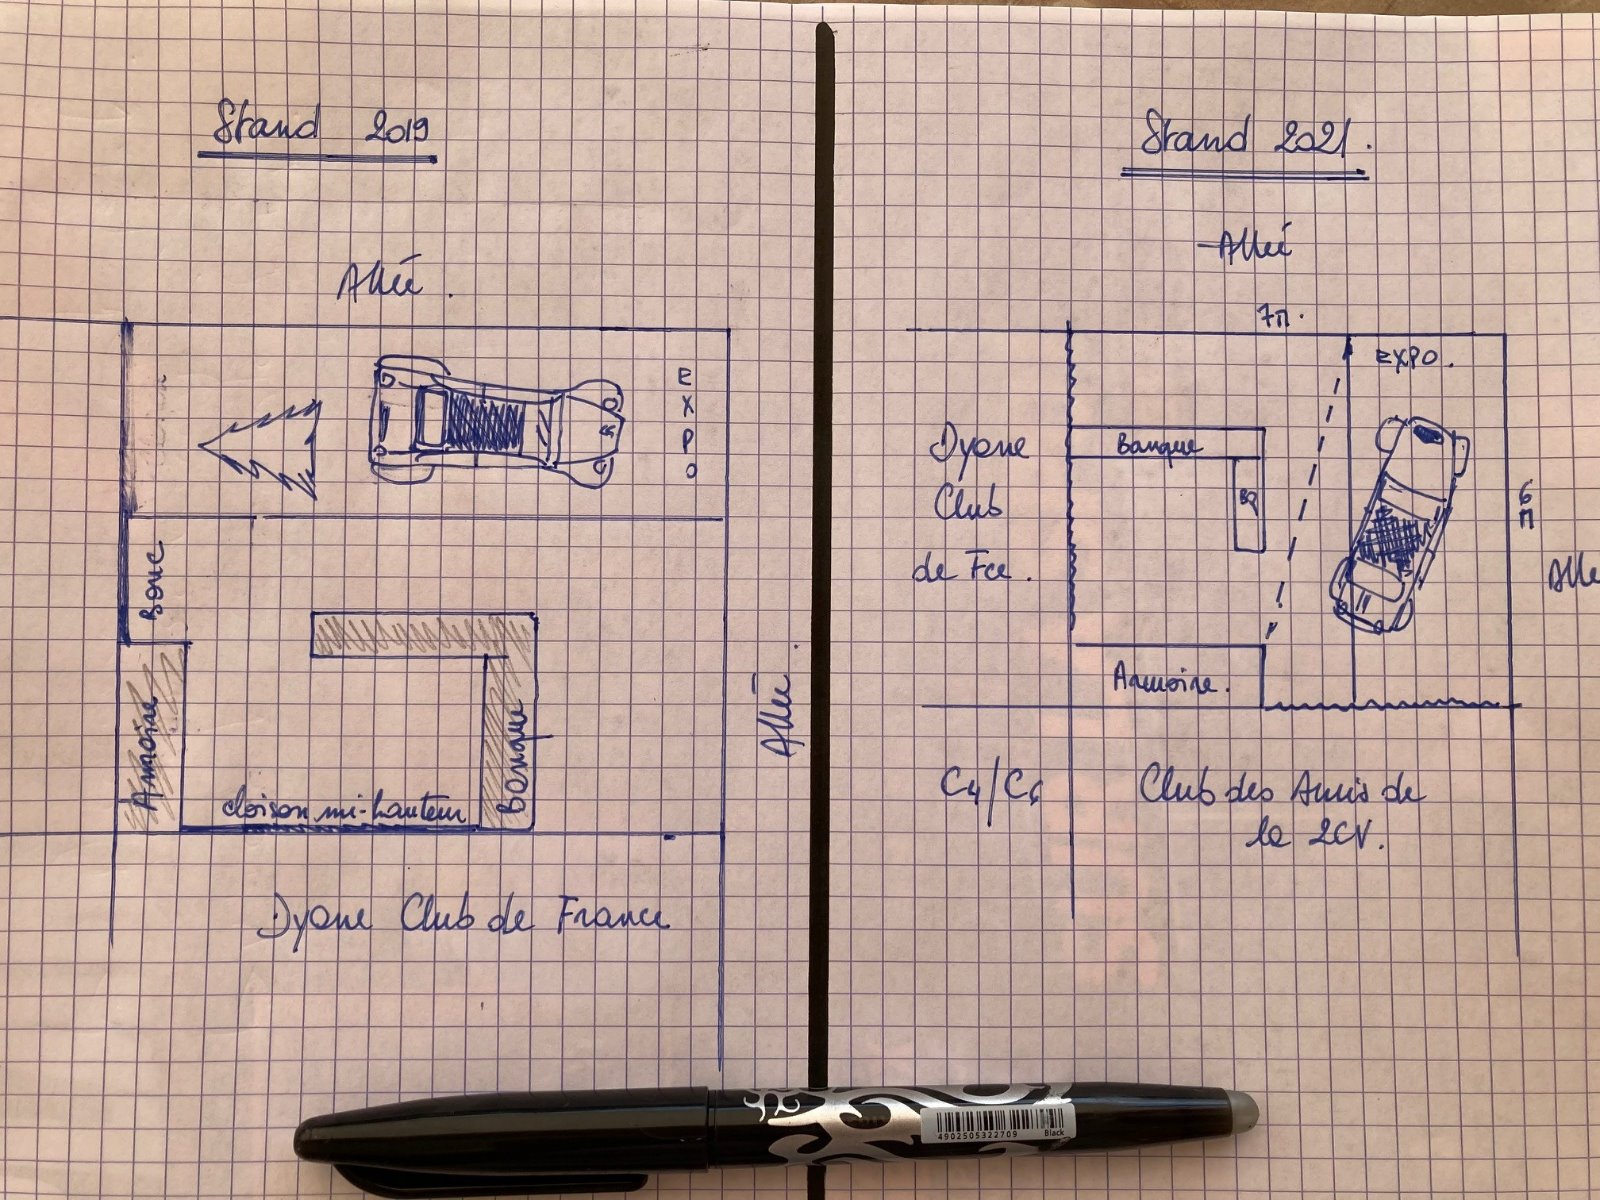 Stand 2019
Allée.
E
X
P
O
Armoire
cloison mi-hauteur
Banque
Allée.
Dyane Club de France
Stand 2021.
Allée
7M.
EXPO.
Dyane
Club
de Fce.
Banque
BQ
6
M
Armoire.
C4/C6
Club des Amis de
la 2CV.
4902505322709
Black